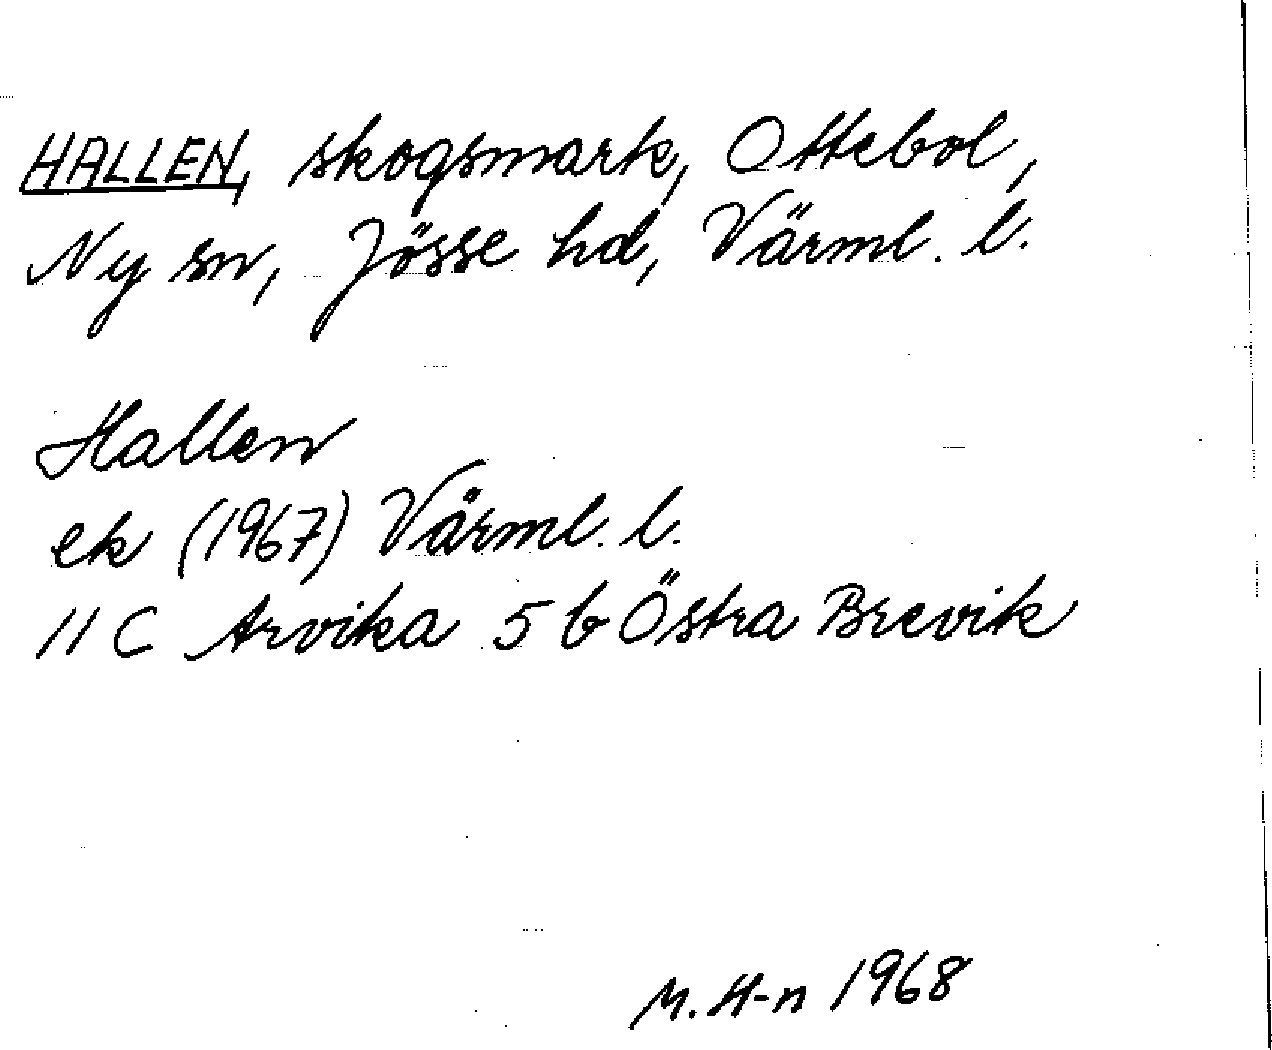 HALLEN, skogsmark, Ottebol,
Ny sn, Jösse hd, Värml. l.
Hallen
ek (1967) Värml. l.
11 C Arvika 5 b Östra Brevik
M. H-n 1968